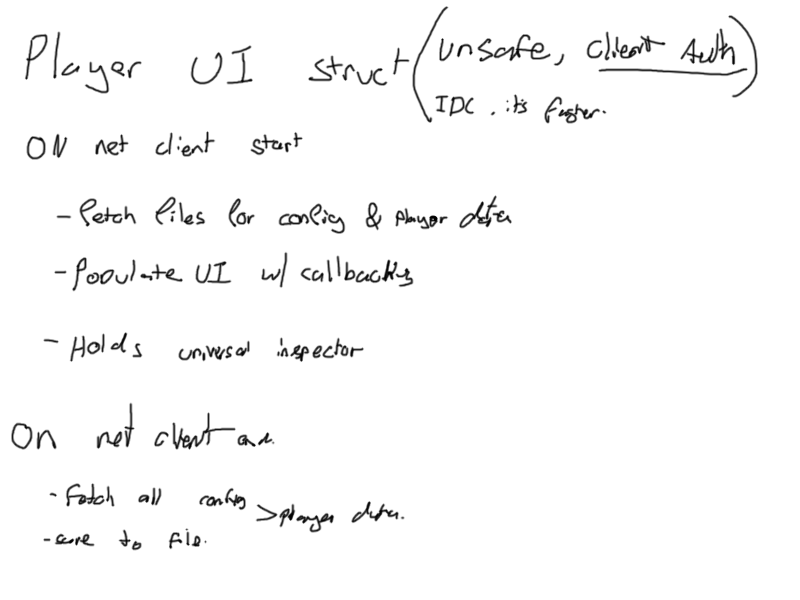 Player UI struct (unsafe, client Auth)
IDC. it's faster.
ON net client start
- Fetch files for config & player data
- Populate UI w/ callbacks
- Holds universal inspector
On net client end.
- Fetch all config > player data.
- save to file.